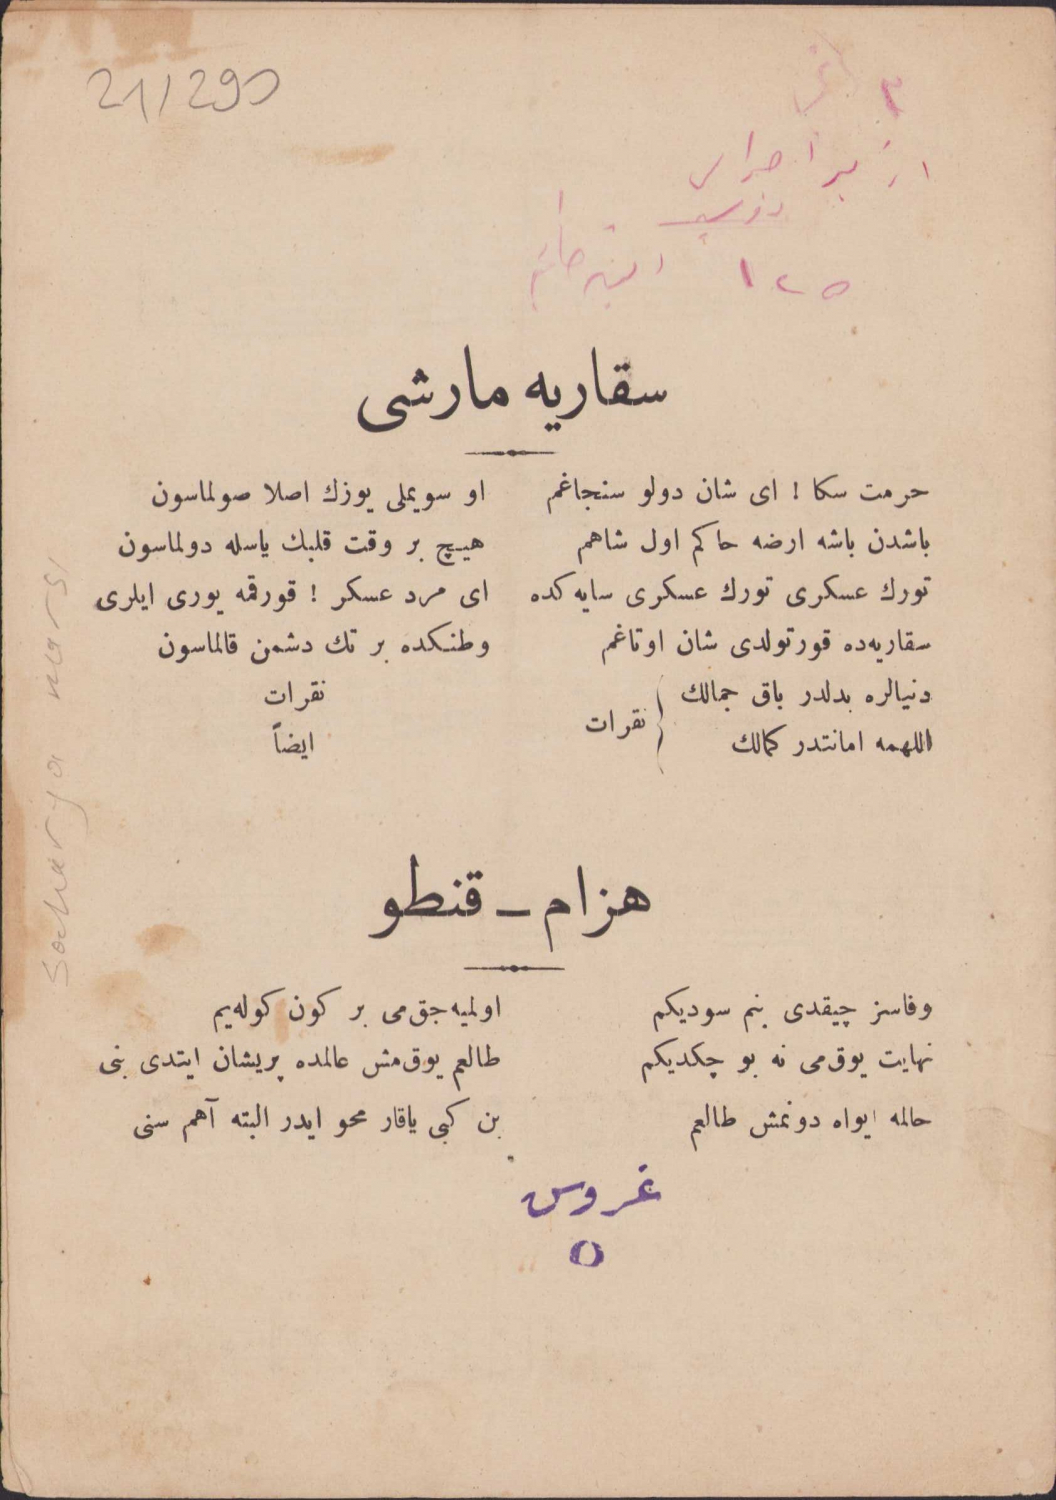 21/290
٣
١٢٥
سقاريه مارشی
حرمت سكا ! ای شان دولو سنجاغم
باشدن باشه ارضه حاكم اول شاهم
تورك عسكری تورك عسكری سايه كده
سقاريه‌ده قورتولدی شان اوتاغم
دنيالره بدلدر باق جمالك
اللهمه امانتدر كمالك
نقرات
او سويملی يوزك اصلا صولماسون
هيچ بر وقت قلبك ياسله دولماسون
ای مرد عسكر ! قورقمه يوری ايلری
وطنكده بر تك دشمن قالماسون
نقرات
ايضاً
Sakarya marsı
هزام ـ قنطو
وفاسز چيقدی بنم سوديكم
نهايت يوق‌می نه بو چكديكم
حالمه ايواه دونمش طالعم
اولميه‌جق‌می بر كون كوله‌يم
طالعم يوق‌مش عالمده پريشان ايتدی بنی
بن كبی ياقار محو ايدر البته آهم سنی
غروس
٥